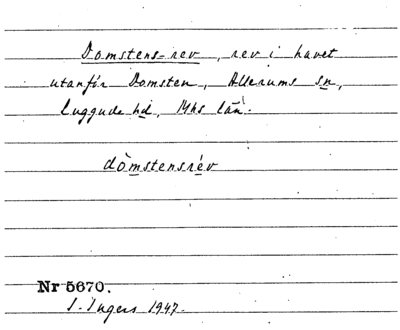 Domstens-rev, rev i havet
utanför Domsten, Allerums sn,
Luggude hd, Mhs län.
dòmstensrév
Nr 5670.
I. Ingers 1947.